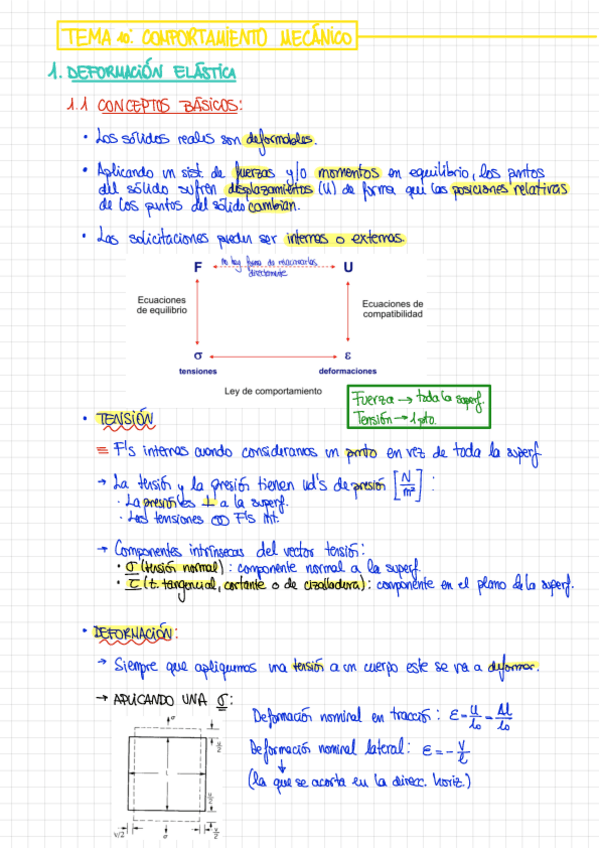 TEMA 10: COMPORTAMIENTO MECÁNICO
1. DEFORMACIÓN ELÁSTICA
1.1 CONCEPTOS BÁSICOS:
• Los sólidos reales son deformables.
• Aplicando un sist. de fuerzas y/o momentos en equilibrio, los puntos
del sólido sufren desplazamientos (U) de forma que las posiciones relativas
de los puntos del sólido cambian.
• Las solicitaciones pueden ser internas o externas.
F no hay forma de relacionarlos U
directamente
Ecuaciones de equilibrio
Ecuaciones de compatibilidad
σ ε
tensiones deformaciones
Ley de comportamiento
Fuerza → toda la superf.
Tensión → 1 pto.
• TENSIÓN
= F's internas cuando consideramos un punto en vez de toda la superf
→ La tensión y la presión tienen ud's de presión [N/m²] :
· La presión es ⊥ a la superf.
· Las tensiones ∞ F's int.
→ Componentes intrínsecas del vector tensión:
• σ (tensión normal) : componente normal a la superf.
• τ (t. tangencial, cortante o de cizalladura) : componente en el plano de la superf.
• DEFORMACIÓN:
→ Siempre que apliquemos una tensión a un cuerpo este se va a deformar.
→ APLICANDO UNA σ:
Deformación nominal en tracción : ε = u/l₀ = Δl/l₀
Deformación nominal lateral: ε = - v/l
↓
(la que se acorta en la direcc. horiz.)
σ
u/2
l
u/2
v/2
σ
v/2